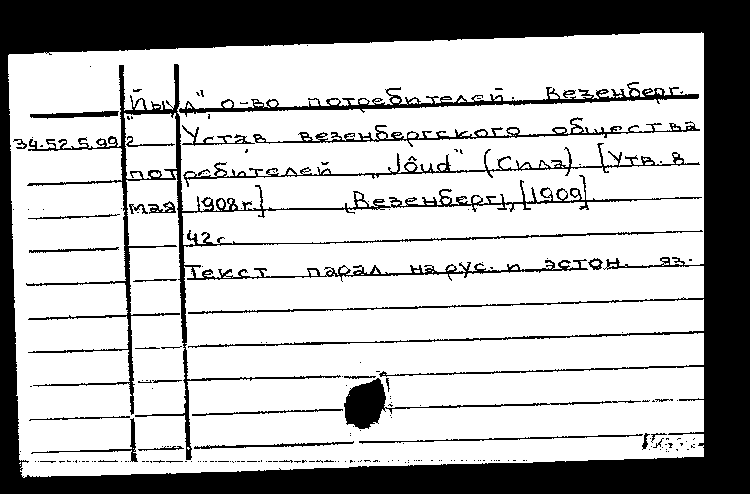 "Йыуд", о-во потребителей. Везенберг.
34.52.5.99/2 Устав везенбергского общества
потребителей "Jõud" (Сила). [Утв. 8
мая 1908 г.]. [Везенберг], [1909].
42 с.
Текст парал. на рус. и эстон. яз.